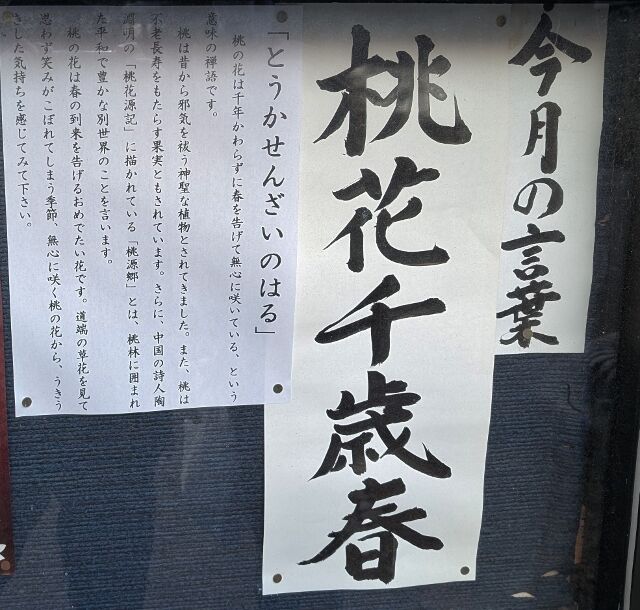 今月の言葉
桃花千歳春
「とうかせんざいのはる」
桃の花は千年かわらずに春を告げて無心に咲いている、という
意味の禅語です。
桃は昔から邪気を祓う神聖な植物とされてきました。また、桃は
不老長寿をもたらす果実ともされています。さらに、中国の詩人陶
淵明の「桃花源記」に描かれている「桃源郷」とは、桃林に囲まれ
た平和で豊かな別世界のことを言います。
桃の花は春の到来を告げるおめでたい花です。道端の草花を見て
思わず笑みがこぼれてしまう季節、無心に咲く桃の花から、うきう
きした気持ちを感じてみて下さい。